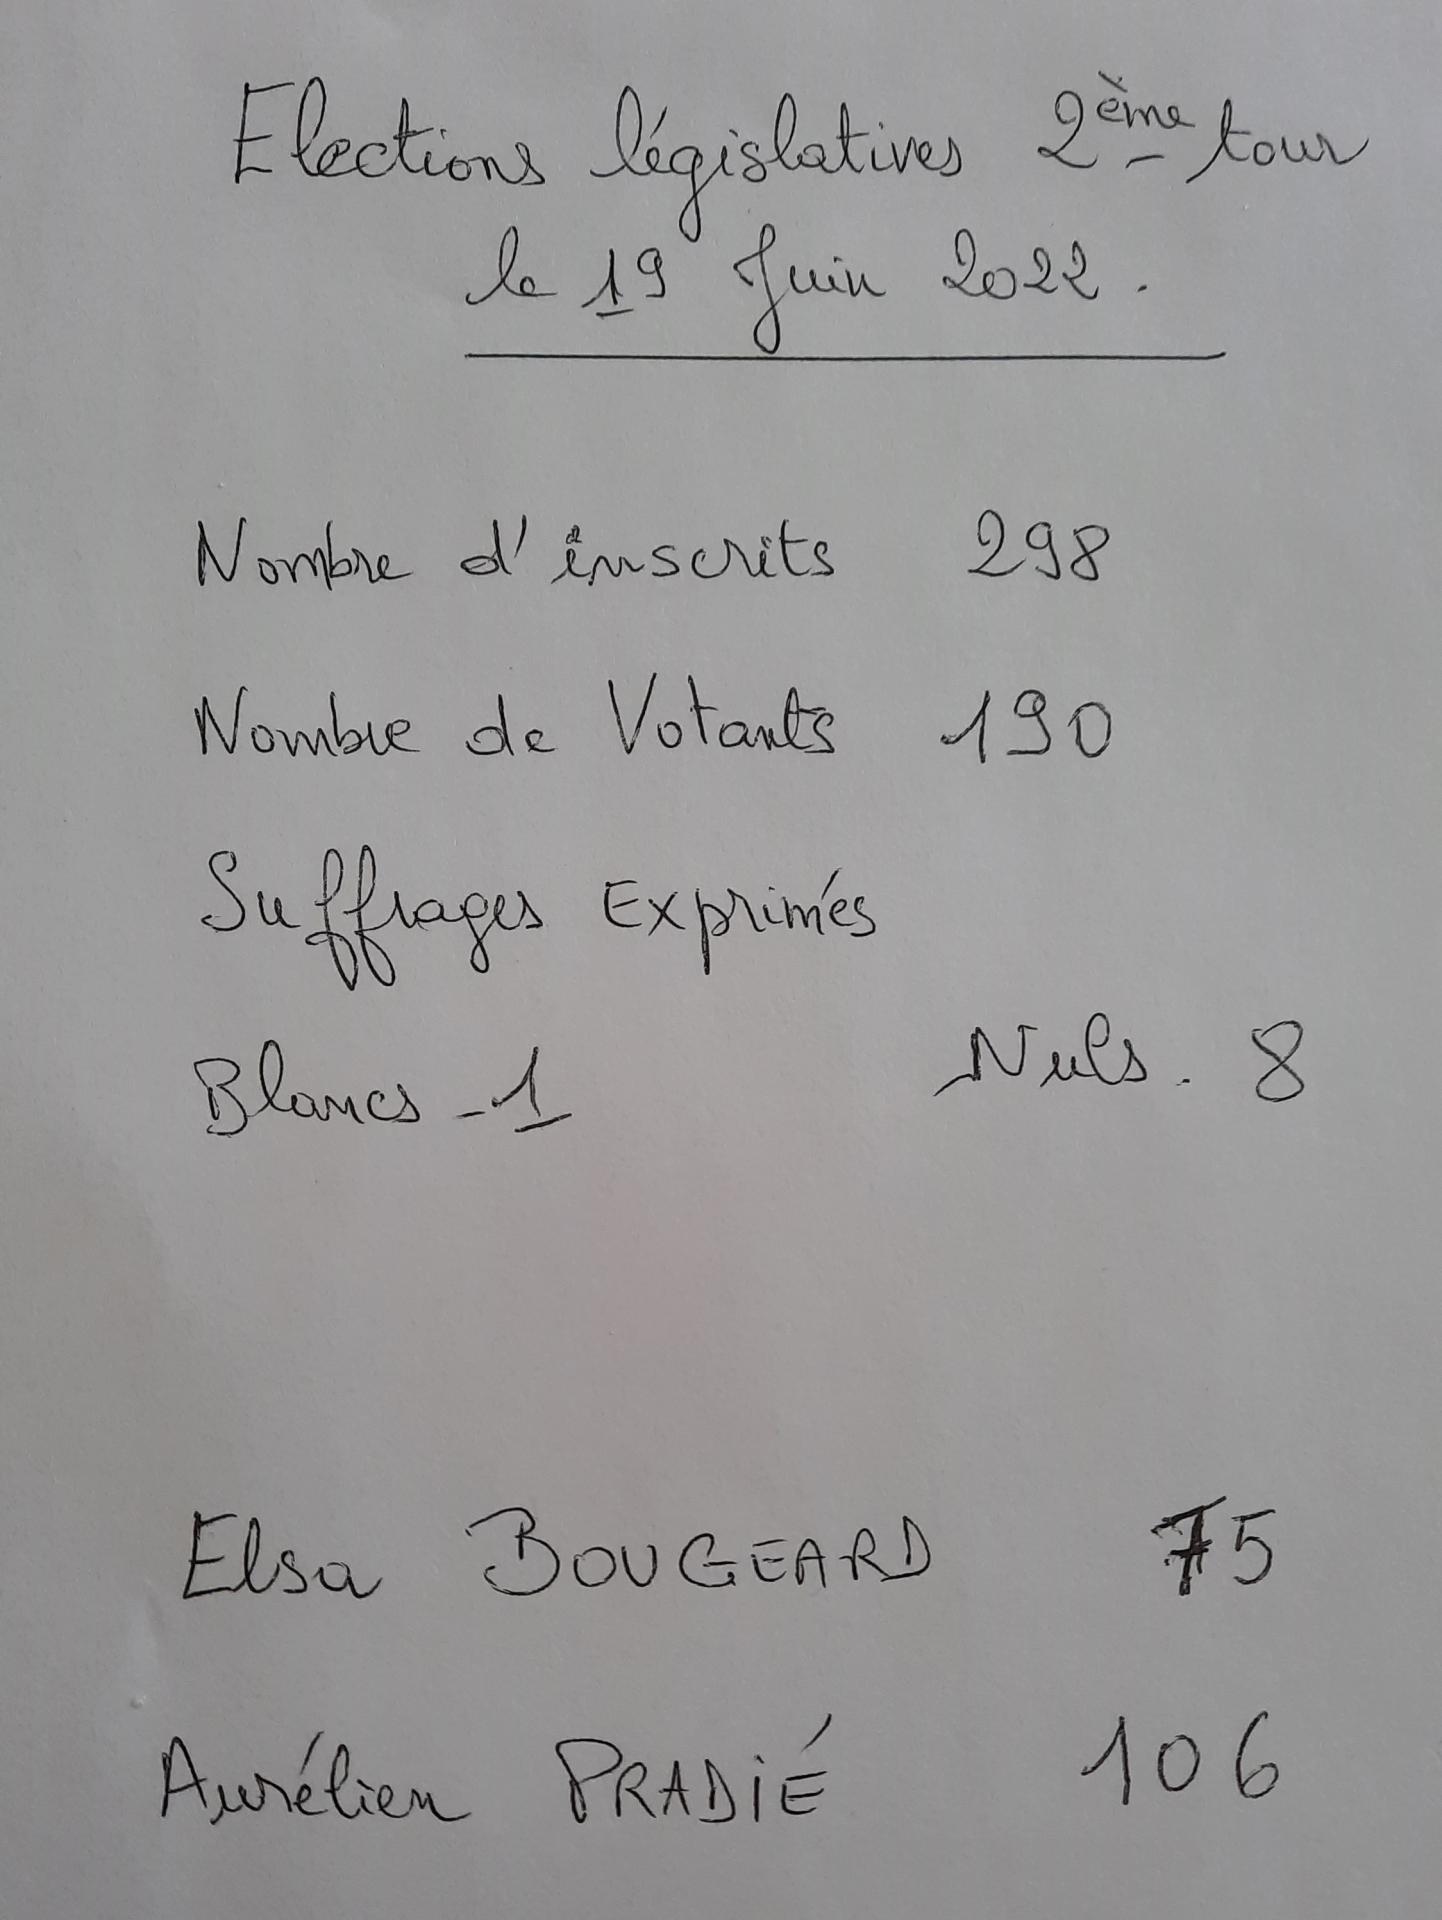 Elections législatives 2ème tour
le 19 Juin 2022.
Nombre d'inscrits 298
Nombre de Votants 190
Suffrages Exprimés
Blancs - 1 Nuls. 8
Elsa BOUGEARD 75
Aurélien PRADIÉ 106